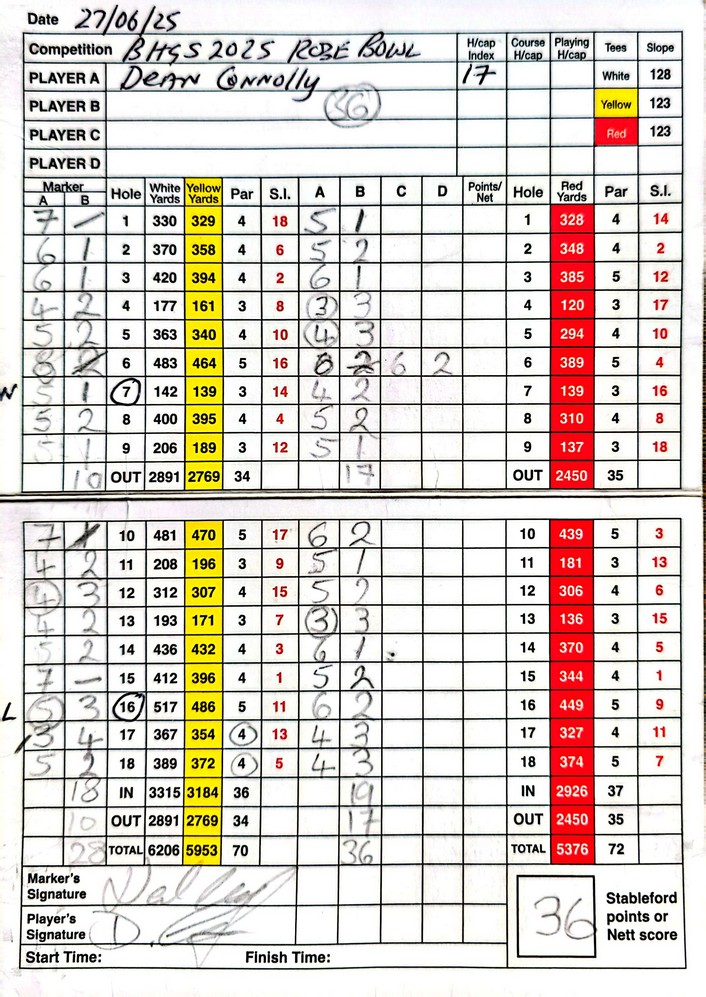 Date 27/06/25
Competition BHGS 2025 ROBE BOWL H/cap Index Course H/cap Playing H/cap Tees Slope
PLAYER A DEAN CONNOLLY 17 White 128
PLAYER B 36 Yellow 123
PLAYER C Red 123
PLAYER D
Marker A B Hole White Yards Yellow Yards Par S.I. A B C D Points/Net Hole Red Yards Par S.I.
7 – 1 330 329 4 18 5 1 1 328 4 14
6 1 2 370 358 4 6 5 2 2 348 4 2
6 1 3 420 394 4 2 6 1 3 385 5 12
4 2 4 177 161 3 8 3 3 4 120 3 17
5 2 5 363 340 4 10 4 3 5 294 4 10
2 6 483 464 5 16 2 6 2 6 389 5 4
5 1 7 142 139 3 14 4 2 7 139 3 16
5 2 8 400 395 4 4 5 2 8 310 4 8
5 1 9 206 189 3 12 5 1 9 137 3 18
10 OUT 2891 2769 34 17 OUT 2450 35
7 1 10 481 470 5 17 6 2 10 439 5 3
4 2 11 208 196 3 9 5 1 11 181 3 13
4 3 12 312 307 4 15 5 2 12 306 4 6
4 2 13 193 171 3 7 3 3 13 136 3 15
5 2 14 436 432 4 3 6 1 14 370 4 5
7 – 15 412 396 4 1 5 2 15 344 4 1
L 5 3 16 517 486 5 11 6 2 16 449 5 9
3 4 17 367 354 4 13 4 3 17 327 4 11
5 2 18 389 372 4 5 4 3 18 374 5 7
18 IN 3315 3184 36 19 IN 2926 37
10 OUT 2891 2769 34 17 OUT 2450 35
28 TOTAL 6206 5953 70 36 TOTAL 5376 72
Marker's Signature
Player's Signature
36 Stableford points or Nett score
Start Time: Finish Time: